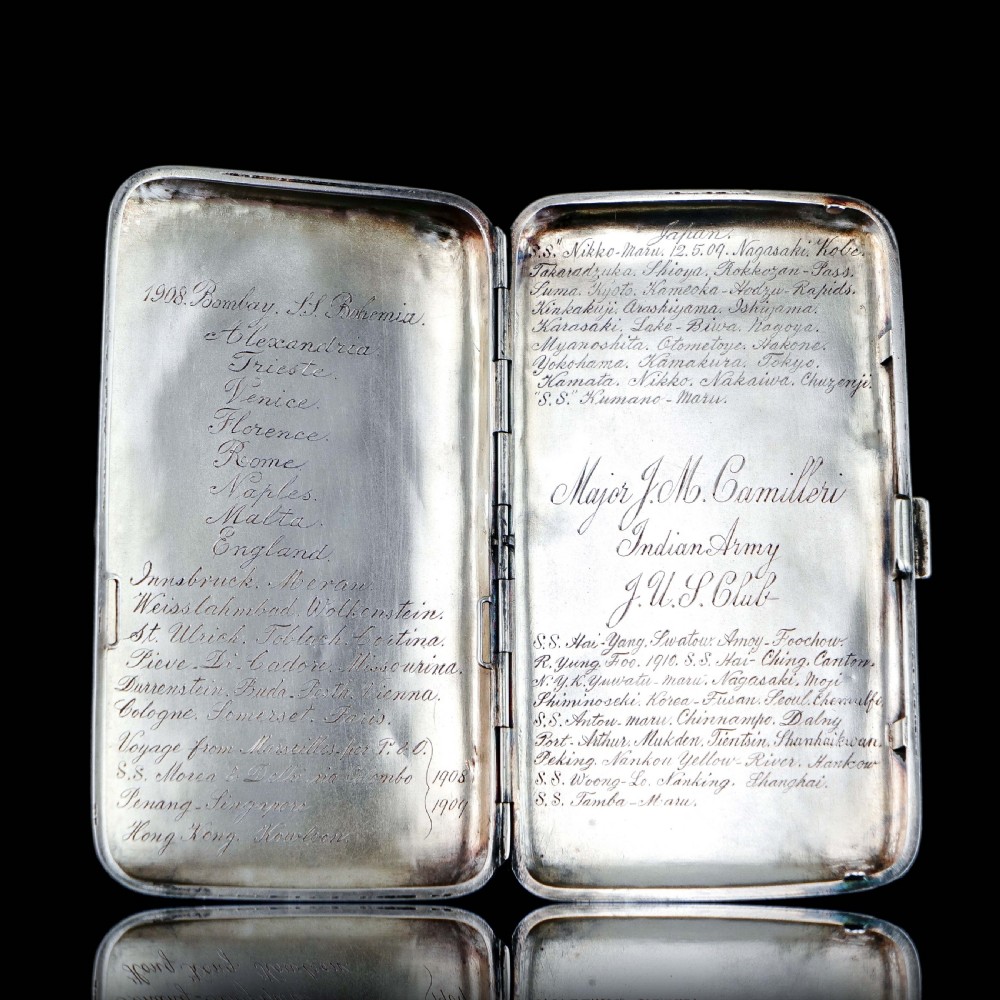 1908. Bombay. S.S. Bohemia.
Alexandria
Trieste.
Venice.
Florence.
Rome.
Naples.
Malta.
England.
Innsbruck. Meran
Weisslahmbad. Wolkenstein.
St. Ulrich. Toblach. Cortina.
Pieve. Di. Cadore. Missourina.
Durrenstein. Buda. Pesta. Vienna.
Cologne. Somerset. Paris.
Voyage from Marseilles per P. & O.
S.S. Morea & 1908
Penang-Singapore 1909
Hong Kong. Kowloon
Japan.
S.S." Nikko-Maru. 12.5.09. Nagasaki. Kobe.
Takaradzuka. Shioya. Rokkozan-Pass.
Suma. Kyoto. Kameoka-Hodzu-Rapids.
Kinkakuji. Arashiyama. Ishiyama.
Karasaki. Lake-Biwa. Nagoya.
Myanoshita. Otometoye. Hakone.
Yokohama. Kamakura. Tokyo.
Kamata. Nikko. Nakaiwa. Chuzenji.
"S.S." Kumano-Maru.
Major J.M. Camilleri
Indian Army
J.U.S. Club
S.S. Hai-Yang. Swatow. Amoy. Foochow.
R. Yung Foo. 1910. S.S. Hai-Ching. Canton.
N.Y.K. Yuwata-maru. Nagasaki. Moji
Shiminoseki. Korea-Fusan. Seoul. Chemulpo
S.S. Antou-maru. Chinnampo. Dalny
Port-Arthur. Mukden. Tientsin. Shanhaikwan.
Peking. Nankou Yellow-River. Hankow
S.S. Woong-Lo. Nanking. Shanghai.
S.S. Tamba-Maru.